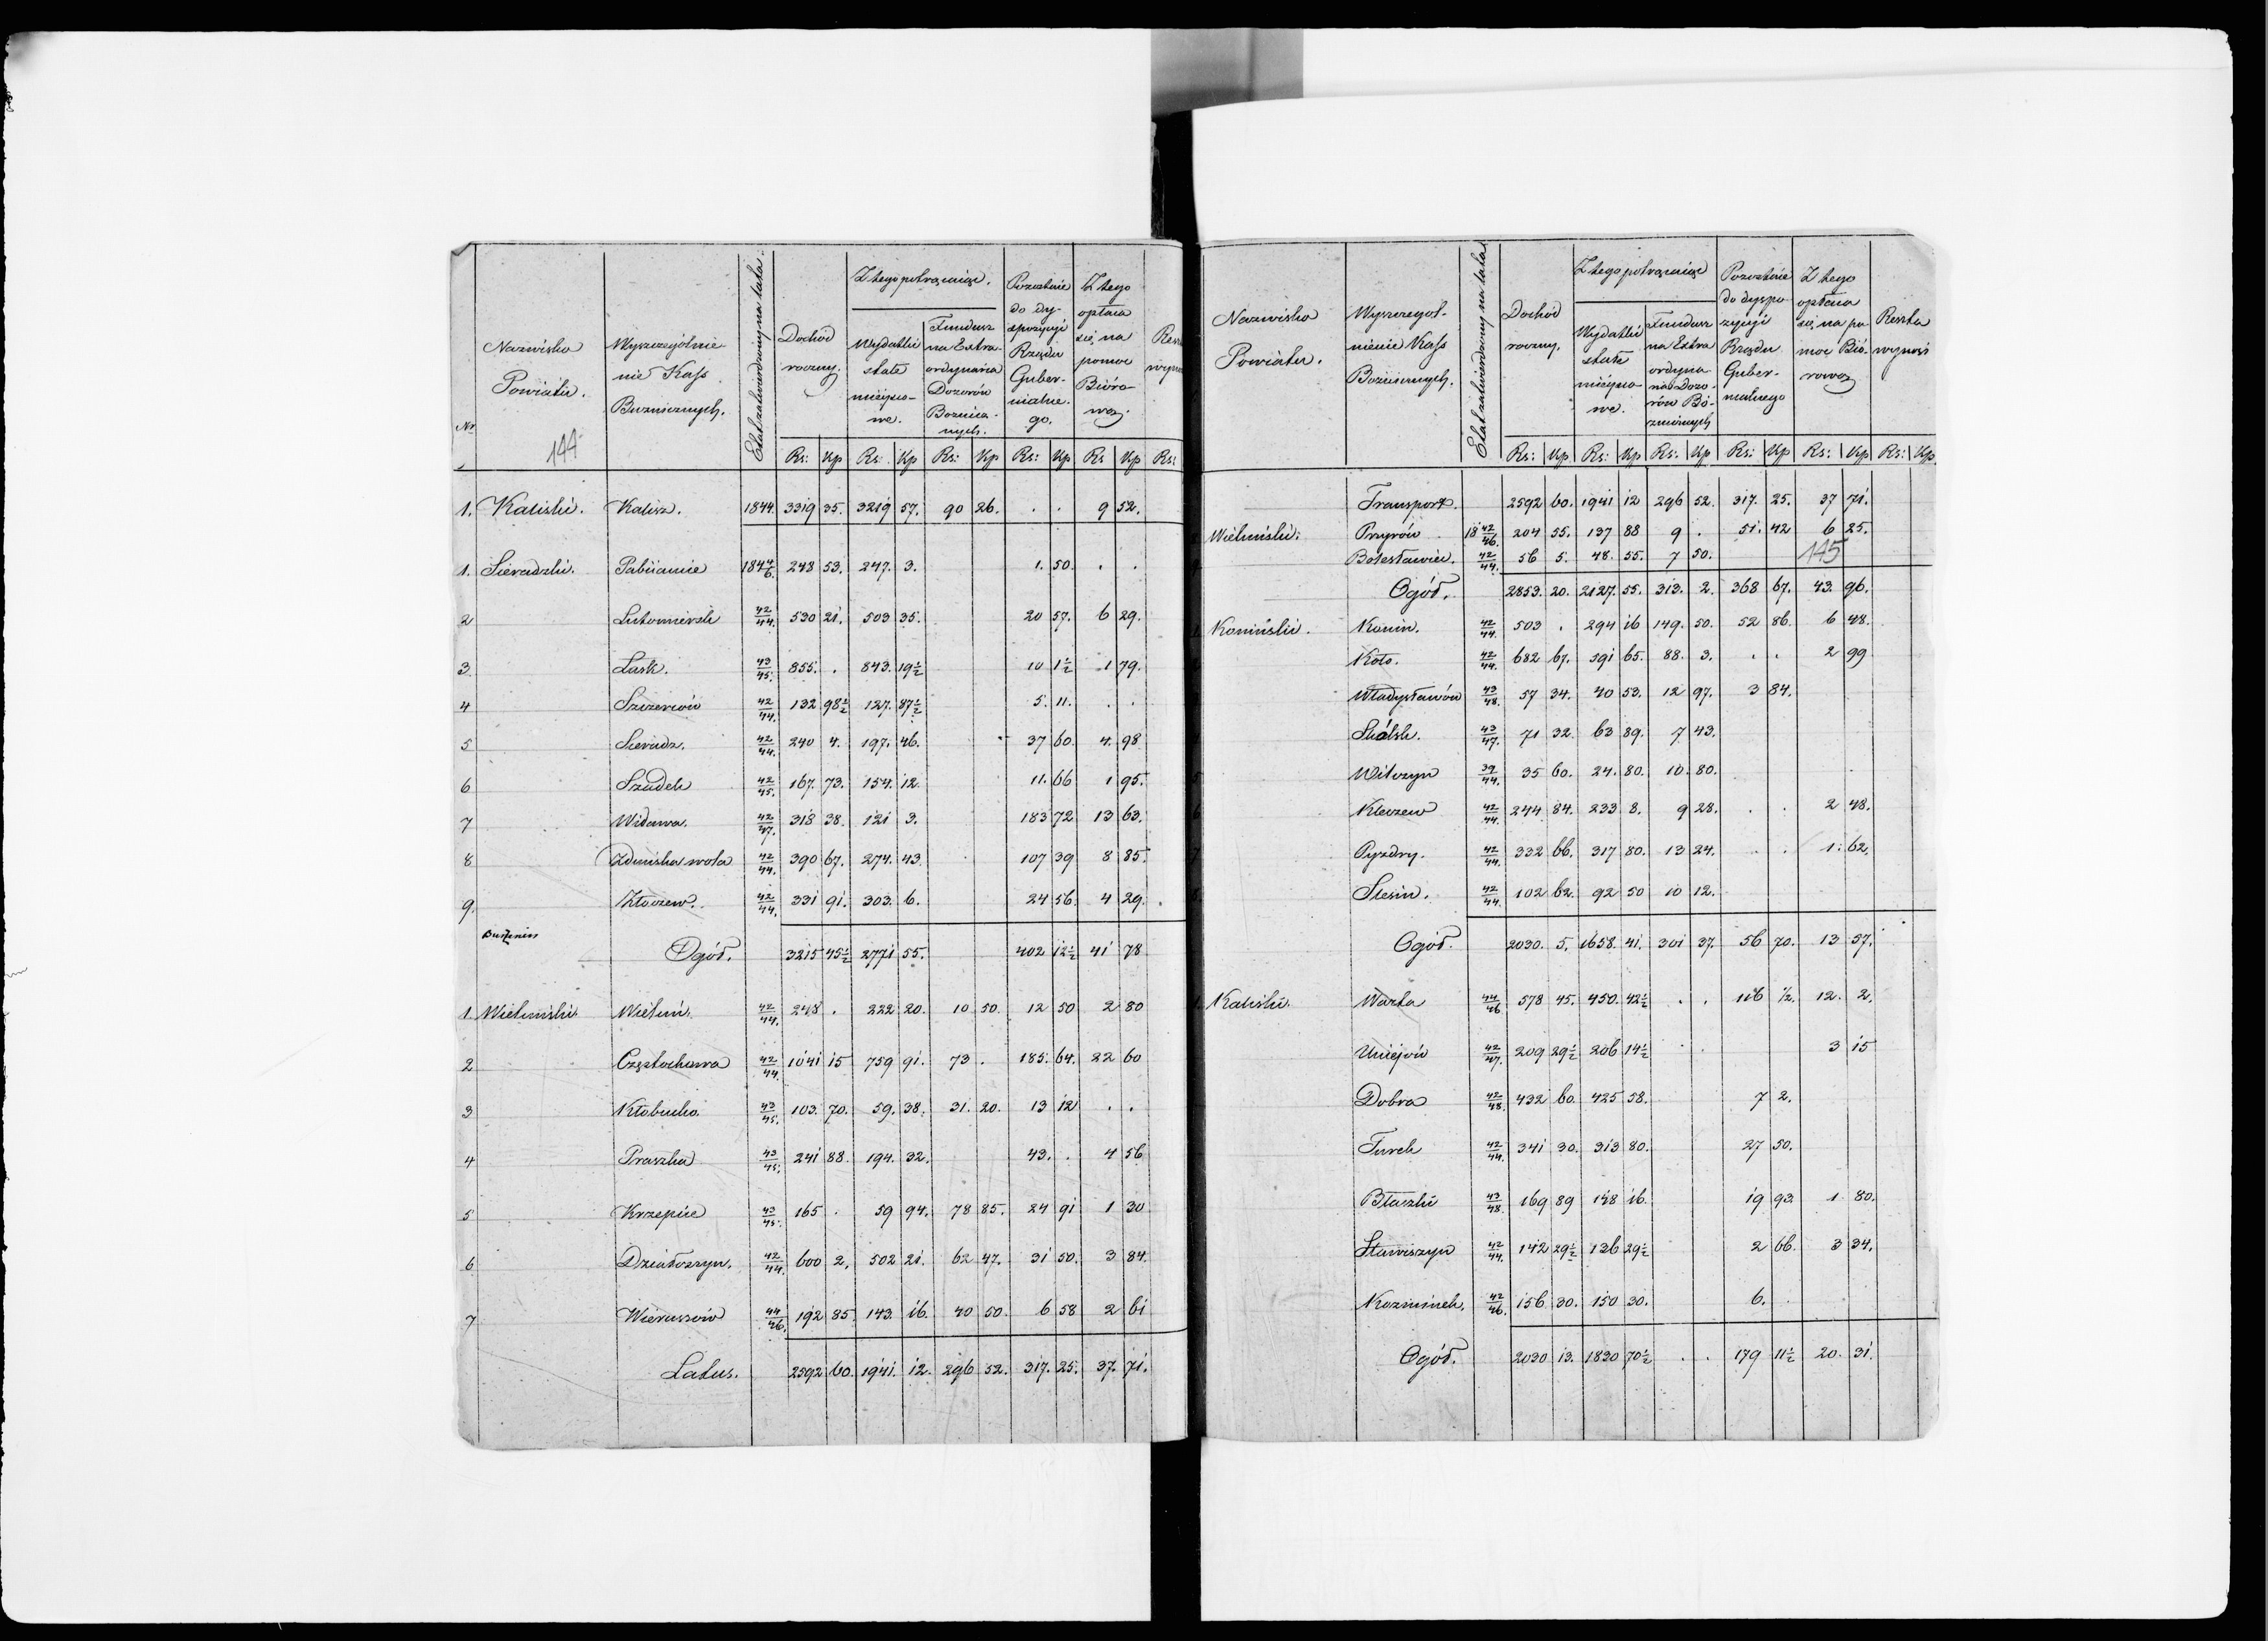 Nr
Nazwisko Powiatu.
Wyszczególnienie Kass Bużnicznych.
Etat zatwierdzony na lata.
Dochód roczny.
Z tego potrącając.
Wydatki stałe miejscowe.
Fundusz na Extraordynaria Dozorów Bożnicznych.
Pozostaie do dyspozycji Rządu Gubernialnego.
Z tego opłaca się na pomoc Biórową.
144
Rs: Kp Rs: Kp Rs: Kp Rs: Kp Rs Kp Rs:
1. Kaliski. Kalisz. 1844. 3319 35. 3219 57. 90 26. . . 9 52.
1. Sieradzki. Pabiianice 1844/6. 248 53. 247. 3. 1. 50. . .
2 Lutomiersk 42/44. 530 21. 503 35. 20 57. 6 29.
3 Lask. 43/45. 855. . 843. 19½ 10 1½ 1 79.
4 Szczerców 42/44. 132 98½ 127. 87½ 5. 11. . .
5 Sieradz. 42/44. 240 4. 197. 46. 37 60. 4. 98
6 Szadek 42/45. 167. 73. 154. 12. 11. 66 1 95.
7 Widawa. 42/47. 318 38. 121 3. 183 72 13 63.
8 Zduńska wola 42/44. 390 67. 274. 43. 107 39 8 85.
9. Złoczew. 42/44. 331 91. 303. 6. 24 56. 4 29.
Burzenin
Ogół. 3215 45½ 2771 55. 402 12½ 41 78
1. Wieluński. Wieluń. 42/44. 248 . 222 20. 10 50. 12 50 2 80
2 Częstochowa 42/44. 1041 15 759 91. 73 . 185. 64. 22 60
3 Kłobucko. 43/45. 103. 70. 59. 38. 31. 20. 13 12 . .
4 Praszka 43/45. 241 88. 194. 32. 43. . 4 56
5 Krzepice 43/45. 165 . 59 94. 78 85. 24 91 1 30
6 Działoszyn. 42/44. 600 2. 502 21. 62 47. 31 50. 3 84.
7 Wieruszów 44/46. 192 85 143. 16. 40 50. 6 58 2 61
Latus. 2592 60. 1941. 12. 296 52. 317. 25. 37. 71.
Nazwisko Powiatu.
Wyszczególnienie Kass Bożnicznych.
Etat zatwierdzony na lata
Dochód roczny.
Z tego potrącaiąc
Wydatki stałe miejscowe.
Fundusz na Extra ordynaria Dozorów Bóżnicznych
Pozostaie do dyspozycyi Rządu Gubernialnego
Z tego opłaca się na pomoc Biórową
Reszta wynosi
Rs: Kp. Rs: Kp Rs: Kp Rs: Kp Rs: Kp Rs: Kp.
Transport. 2592 60. 1941 12 296 52. 317. 25. 37 71.
Wieluński. Przyrów 1842/46. 204 55. 137 88 9 . 51. 42 6 25.
Bolesławiec. 42/44. 56 5. 48. 55. 7 50.
145
Ogół. 2853. 20. 2127. 55. 313. 2. 368 67. 43. 96.
1. Koniński. Konin. 42/44. 503 . 294 16 149. 50. 52 86. 6 48.
Koło. 42/44. 682 67. 591 65. 88. 3. . . 2 99
Władysławów 43/48. 57 34. 40 53. 12 97. 3 84.
Skólsk. 43/47. 71 32. 63 89. 7 43.
5 Wilczyn 39/44. 35 60. 24. 80. 10. 80.
6 Kleczew 42/44. 244 84. 233 8. 9 28. . . 2 48.
7 Pyzdry. 42/44. 332 66. 317 80. 13 24. . . 1. 62.
8. Slesin. 42/44. 102 62. 92 50 10 12.
Ogół. 2030. 5. 1658. 41. 301 37. 56 70. 13 57.
1. Kaliski. Warta 44/46 578 45. 450. 42½ . . 116 ½. 12. 2.
Uniejow 42/47. 209 29½ 206 14½ 3 15
Dobra 42/48. 432 60. 425 58. 7 2.
Turek 42/44. 341 30. 313 80. 27 50.
Błaszki 43/48. 169 89 148 16. 19 93. 1 80.
Stawiszyn 42/44. 142 29½ 136 29½ 2 66. 3 34.
Kozminek. 42/46. 156 30. 150 30. 6. .
Ogół. 2030 13. 1830 70½ . . 179 11½ 20. 31.